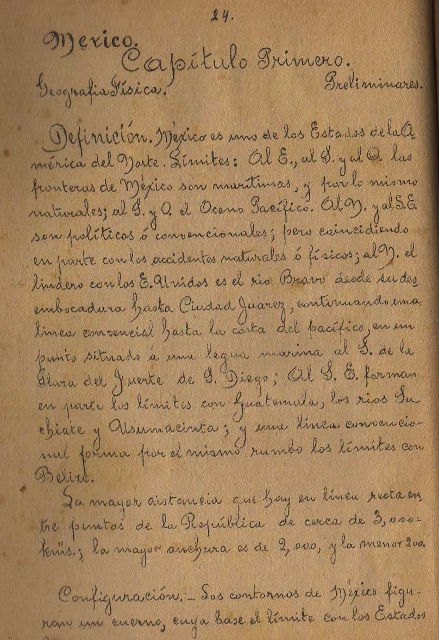 24.
Mexico.
Capítulo Primero.
Geografia Física. Preliminares.
Definición. México es uno de los Estados de la A-
mérica del Norte. Límites: Al E., al S. y al O. las
fronteras de México son marítimas, y por lo mismo
naturales; al S. y O. el Oceno Pacífico. Al N. y al S.E.
son políticos ó convencionales; pero coincidiendo
en parte con los accidentes naturales ó físicos; al N. el
lindero con los E. Unidos es el rio Bravo desde su des
embocadura hasta Ciudad Juarez, continuando una
linea convencial hasta la costa del pacífico, en un
punto situado a una legua marina al S. de la
del de S. Diego; Al S. E. forman
en parte los límites con Guatemala, los rios Su-
chiate y Usumacinta; y una linea convencio-
nal forma por el mismo rumbo los límites con
Belize.
La mayor distancia que hay en linea recta en
tre puntos de la República de cerca de 3,000-
kms.; la mayor anchura es de 2,000, y la menor 200.
Configuración.- Los contornos de México figu-
ran un cuerno, cuya base el límite con los Estados